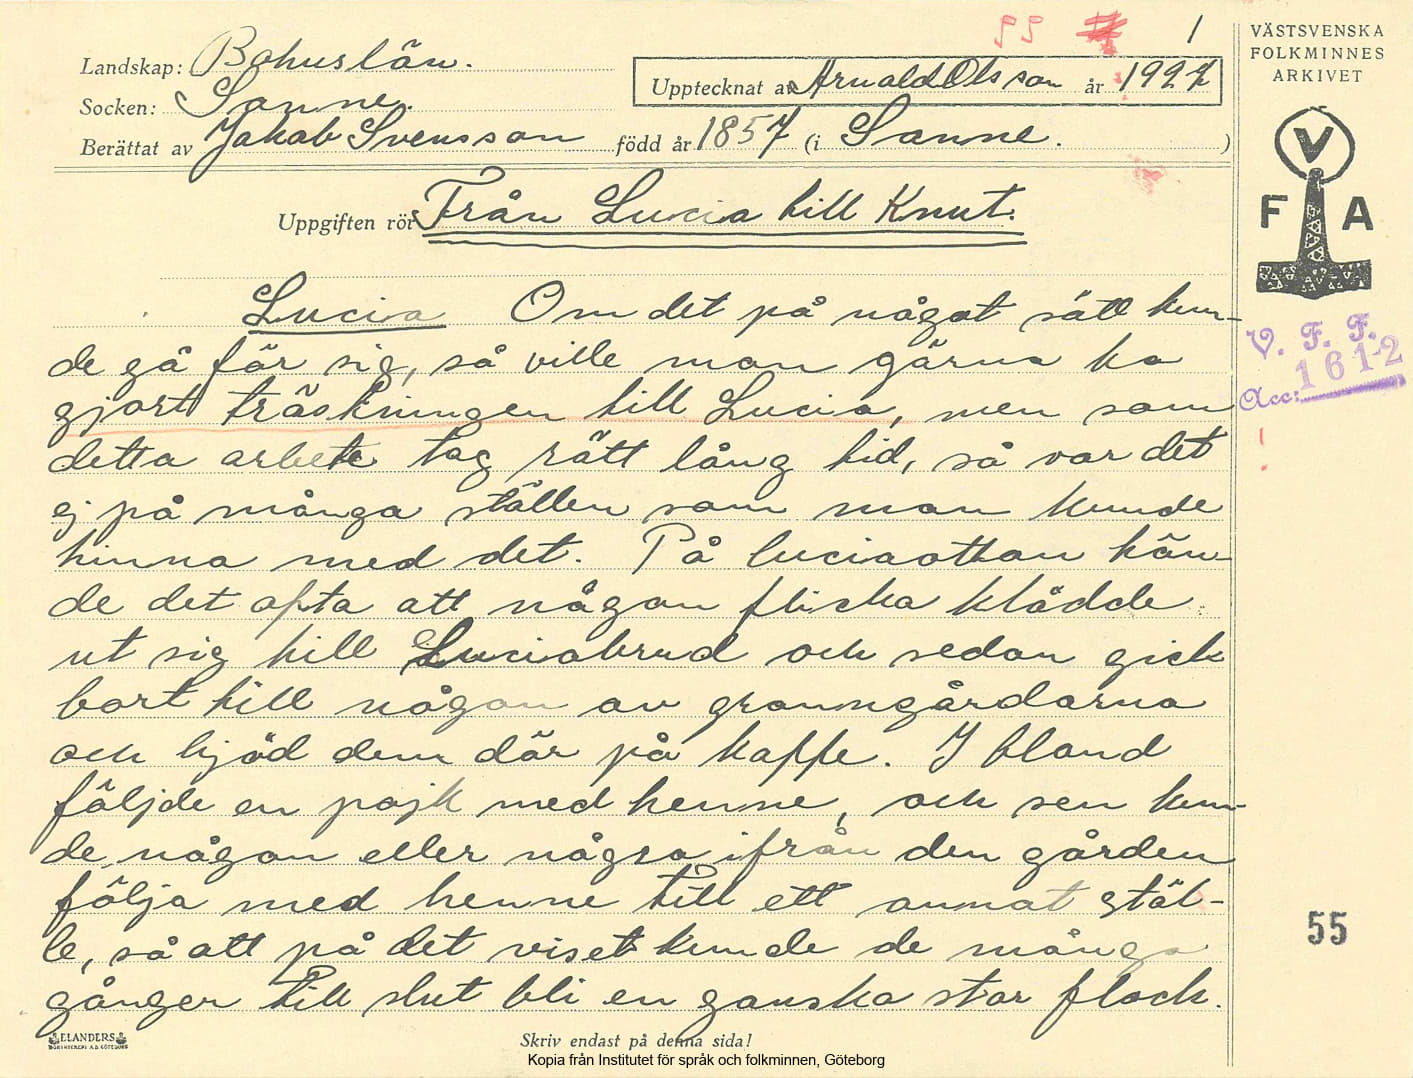 55 1
Landskap: Bohuslän.
Socken: Sanne.
Upptecknat av Arnold Olsson år 1927
Berättat av Jakob Svensson född år 1857 (i Sanne. )
Uppgiften rör Från Lucia till Knut.
Lucia Om det på något sätt kun-
de gå för sig, så ville man gärna ha
gjort tröskningen till Lucia, men som
detta arbete tog rätt lång tid, så var det
ej på många ställen som man kunde
hinna med det. På luciaottan hän-
de det ofta att någon flicka klädde
ut sig till Luciabrud och sedan gick
bort till någon av granngårdarna
och bjöd dem där på kaffe. I bland
följde en pojk med henne, och sen kun-
de någon eller några ifrån den gården
följa med henne till ett annat stäl-
le, så att på det viset kunde de många
gånger till slut bli en ganska stor flock.
ELANDERS
BOKTRYCKERI A.B. GÖTEBORG
Skriv endast på denna sida!
Kopia från Institutet för språk och folkminnen, Göteborg
VÄSTSVENSKA
FOLKMINNES
ARKIVET
V
F A
V. F. F.
Acc: 1612
55